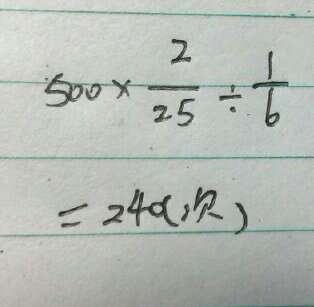 500 × 2/25 ÷ 1/6
= 240(次)